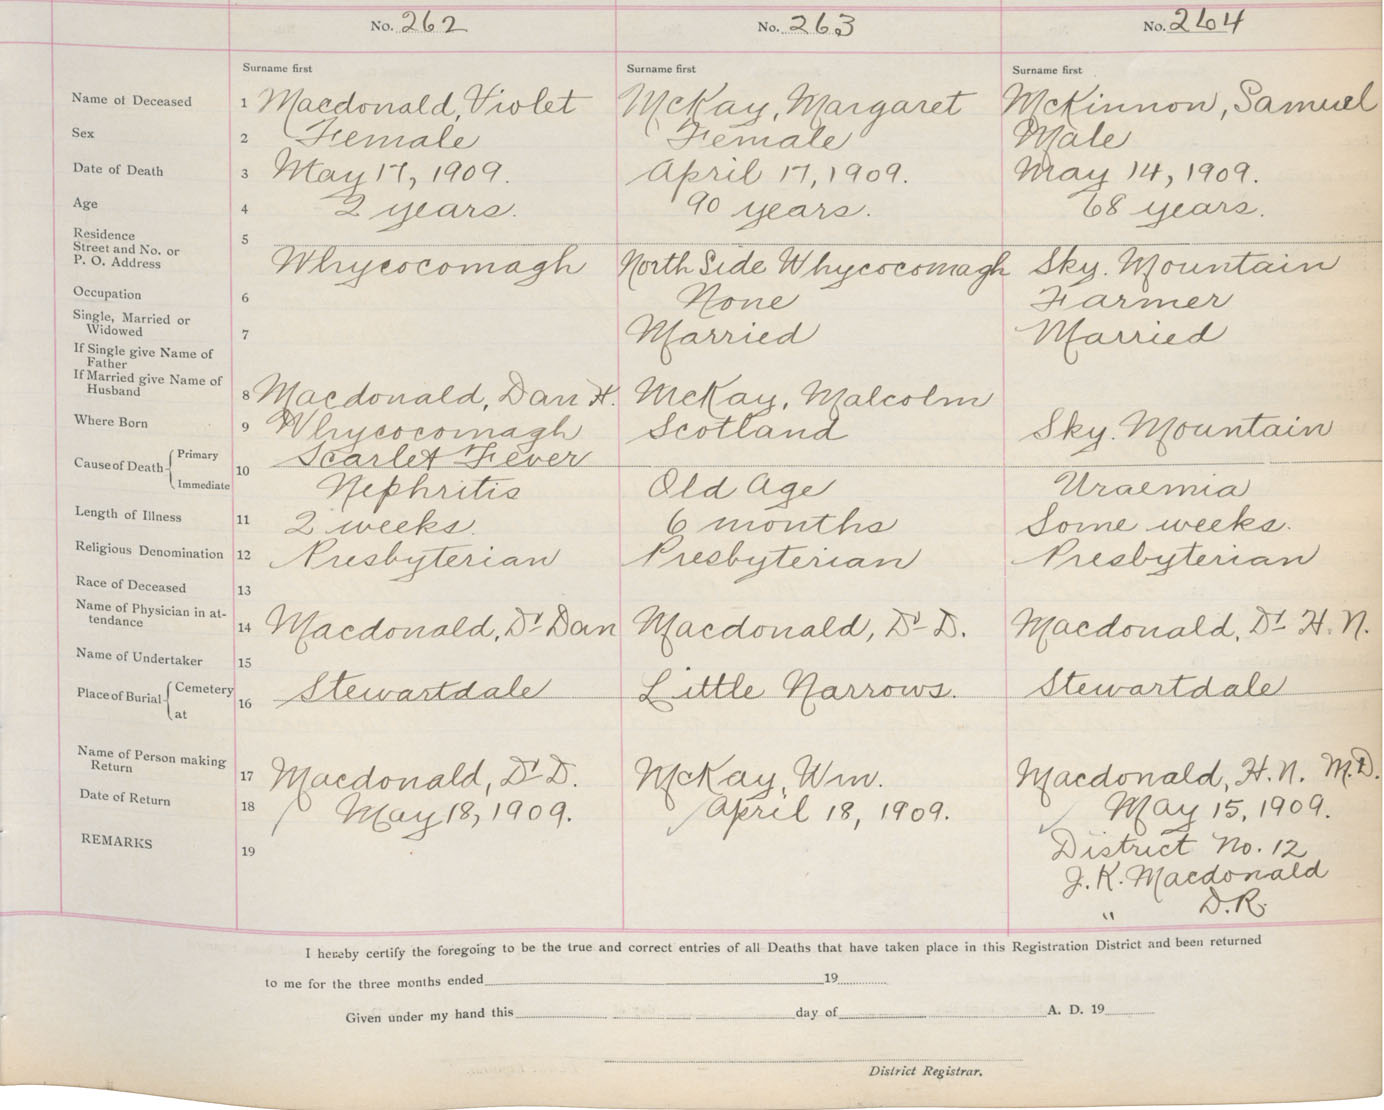 No. 262 No. 263 No. 264
Surname first Surname first Surname first
Name of Deceased 1 Macdonald, Violet McKay, Margaret McKinnon, Samuel
Sex 2 Female Female Male
Date of Death 3 May 17, 1909. April 17, 1909. May 14, 1909.
Age 4 2 years. 90 years. 68 years.
Residence
Street and No. or
P. O. Address 5 Whycocomagh North Side Whycocomagh Sky. Mountain
Occupation 6 None Farmer
Single, Married or
Widowed 7 Married Married
If Single give Name of
Father
If Married give Name of
Husband 8 Macdonald, Dan H. McKay, Malcolm
Where Born 9 Whycocomagh Scotland Sky. Mountain
Cause of Death Primary 10 Scarlet Fever
Immediate Nephritis Old Age Uraemia
Length of Illness 11 2 weeks. 6 months Some weeks.
Religious Denomination 12 Presbyterian Presbyterian Presbyterian
Race of Deceased 13
Name of Physician in at-
tendance 14 Macdonald, Dr Dan Macdonald, Dr D. Macdonald, Dr H. N.
Name of Undertaker 15
Place of Burial Cemetery 16 Stewartdale Little Narrows. Stewartdale
at
Name of Person making
Return 17 Macdonald, Dr D. McKay, Wm. Macdonald, H. N. M.D.
Date of Return 18 May 18, 1909. April 18, 1909. May 15, 1909.
REMARKS 19 District No. 12
J. K. Macdonald
" D.R.
I hereby certify the foregoing to be the true and correct entries of all Deaths that have taken place in this Registration District and been returned
to me for the three months ended 19
Given under my hand this day of A. D. 19
District Registrar.